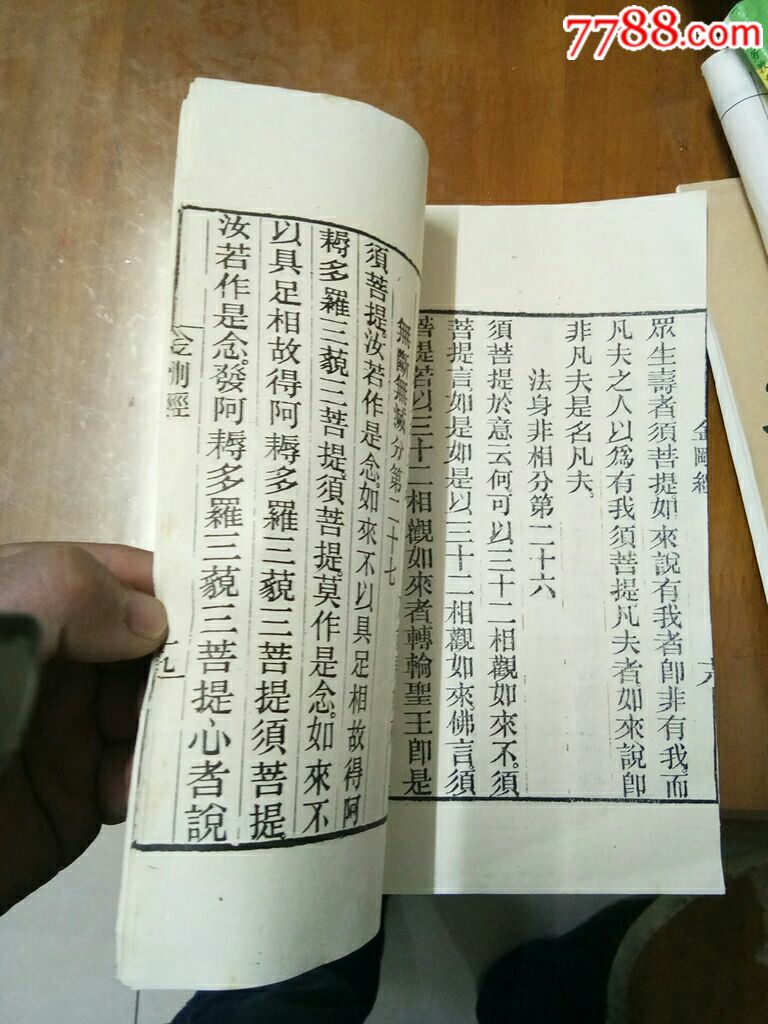 7788.com
金剛經
眾生壽者須菩提。如來說有我者。卽非有我。而
凡夫之人以爲有我須菩提凡夫者。如來說卽
非凡夫是名凡夫。
法身非相分第二十六
須菩提於意云何。可以三十二相觀如來不。須
菩提言如是如是。以三十二相觀如來。佛言。須
菩提若以三十二相觀如來者轉輪聖王卽是
無斷無滅分第二十七
須菩提。汝若作是念。如來不以具足相故得阿
耨多羅三藐三菩提。須菩提。莫作是念。如來不
以具足相故得阿耨多羅三藐三菩提須菩提。
汝若作是念。發阿耨多羅三藐三菩提心者說
金剛經